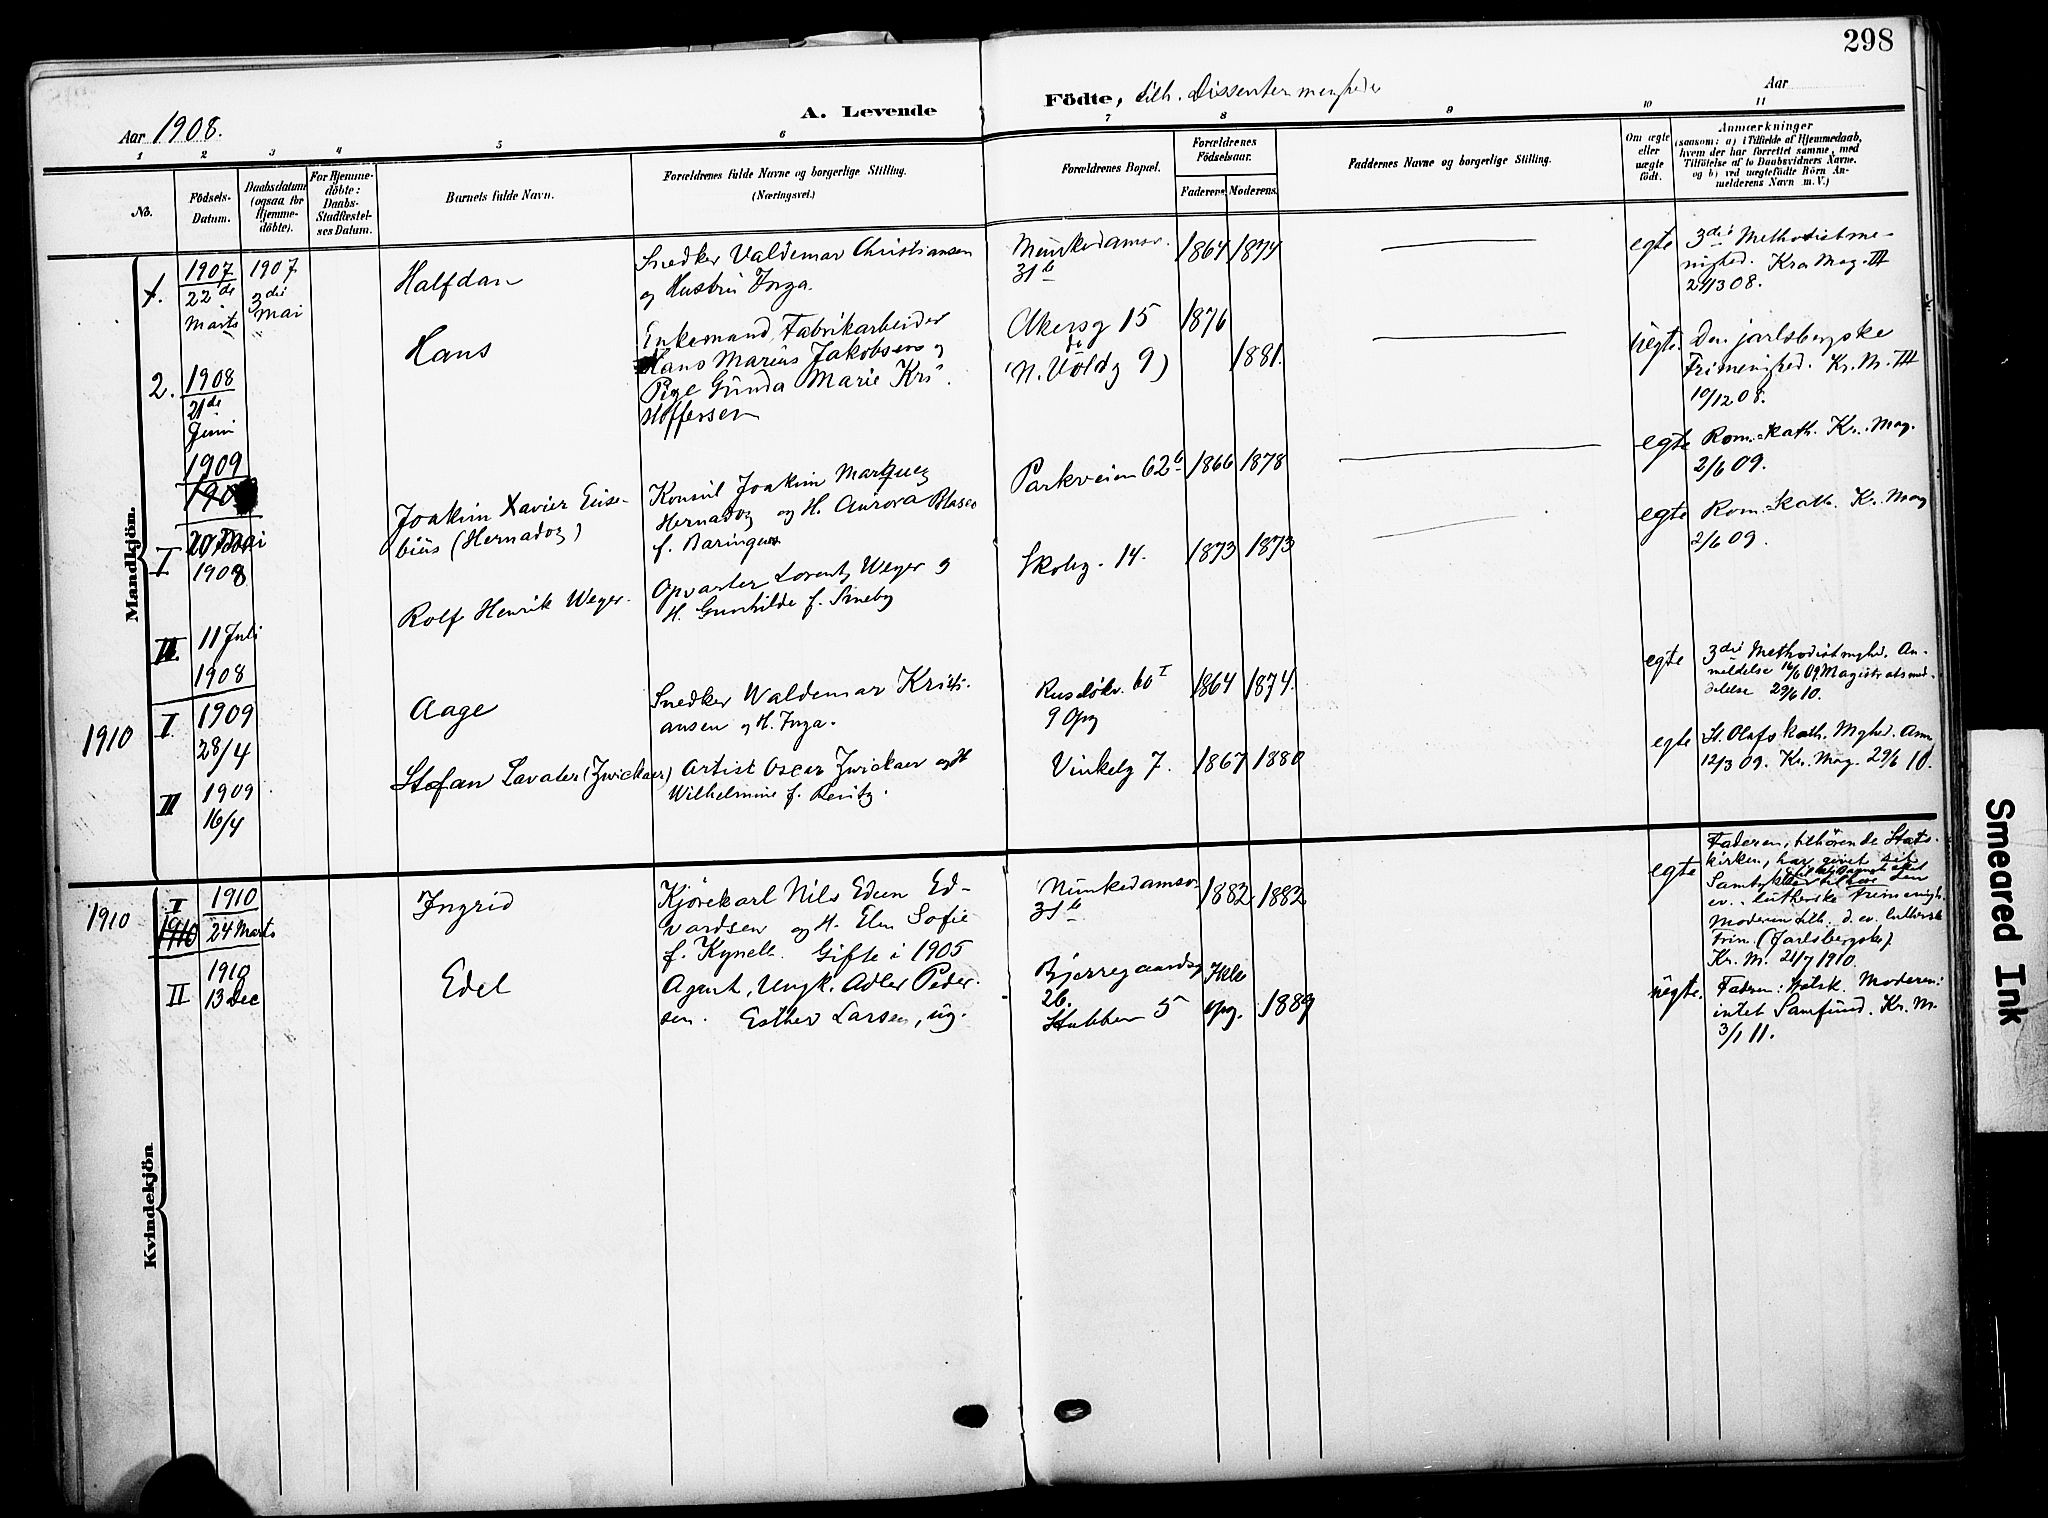 298
Aar 1908.
A. Levende Födte, tilh. Dissentermenigheder
Aar
1 2 3 4 5 6 7 8 9 10 11
No.
Födsels-Datum.
Daabsdatum (ogsaa for Hjemme-döbte).
For Hjemme-döbte: Daabs-Stadfæstel-ses Datum.
Barnets fulde Navn.
Forældrenes fulde Navne og borgerlige Stilling.
(Næringsvei.)
Forældrenes Bopæl.
Forældrenes Födselsaar.
Faderens. Moderens.
Faddernes Navne og borgerlige Stilling.
Om ægte eller uægte födt.
Anmærkninger
(saasom: a) i Tilfælde af Hjemmedaab, hvem der har forrettet samme, med Tilföielse af to Daabsvidners Navne, og b) ved uægtefödte Börn An-melderens Navn m. V.)
Mandkjön.
1. 1907 22de Marts
1907 3die Mai
Halfdan
Snedker Valdemar Christiansen
og Hustru Inga.
Munkedamsv.
31b
1864 1874
egte
3die Methodistme-
nighed. Kra Mag. III
24/3 08.
2. 1908
21de
Juni
Hans
Enkemand, Fabrikarbeider
Hans Marius Jakobsen og
Pige Gunda Marie Kri-
stoffersen
Akersg 15
(N. Voldg 9)
1876 1881.
uegte.
Den jarlsbergske
Frimenighed. Kr. M. III
10/12 08.
I 1909
20 Mai
1908
Joakim Xavier Euse-
bius (Hernadoz)
Konsul Joakim Marquez
Hernadoz og H. Aurora Blasco
f. Baringues
Parkveien 62b
1866 1878
egte
Rom.-kath. Kr. Mag.
2/6 09.
II 11 Juli
1908
Rolf Henrik Weyer.
Opvarter Lorentz Weyer og
H. Gunhilde f. Smeby
Skoleg. 14.
1873 1873
egte
Rom.-kath. Kr. Mag
2/6 09.
1910
I 1909
28/4
Aage
Snedker Waldemar Kristi-
ansen og H. Inga.
Ruselökv. 60 I
9 Opg
1864 1874.
egte
3die Methodistmghed. An-
meldelse 16/6 09, Magistratsmed-
delelse 29/6 10.
II 1909
16/4
Stefan Lavater (Zwickaer)
Artist Oscar Zwickaer og H
Wilhelmine f. Peritz.
Vinkelg 7.
1867 1880
egte
St. Olafs kath. Mghed. Anm
12/3 09. Kr. Mag. 29/6 10.
Kvindekjön
1910
I 1910
1910 24 Marts
Ingrid
Kjörekarl Nils Edein Ed-
vardsen og H. Elen Sofie
f. Kynell. Gifte i 1905
Munkedamsv.
31b
1882. 1882
egte
Faderen, tilhörende Stats-
kirken, har givet sit
Samtykke til
ev. lutherske Frimenigh.
Moderen tilh. d. ev. lutherske
Frim. (Jarlsbergske).
Kr. M. 21/7 1910.
II 1910
13 Dec
Edel
Agent, Ungk. Adler Peder-
sen. Esther Larsen, ug.
Bjerregaardsg
26.
Stubben 5
Ikke
opg. 1889
uegte.
Faderen: Statsk. Moderen:
intet Samfund. Kr. M.
3/1 11.
Smeared Ink